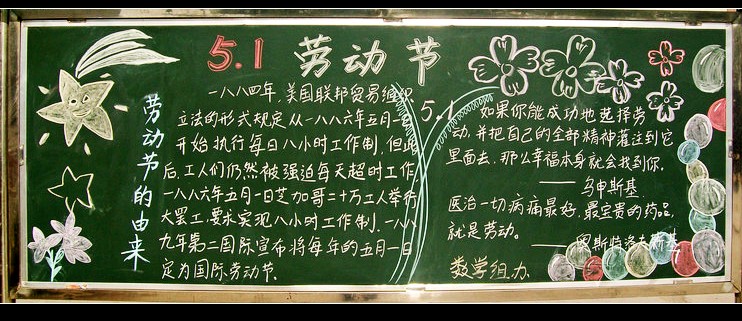 5.1 劳动节
劳动节的由来
一八八四年,美国联邦贸易组织
立法的形式规定从一八八六年五月一
开始执行每日八小时工作制,但此
后,工人们仍然被强迫每天超时工作,
一八八六年五月一日芝加哥二十万工人举行
大罢工,要求实现八小时工作制,一八八
九年第二国际宣布将每年的五月一日
定为国际劳动节.
5.1
如果你能成功地选择劳
动,并把自己的全部精神灌注到它
里面去,那么幸福本身就会找到你。
——乌申斯基
医治一切病痛最好,最宝贵的药品,
就是劳动。
——奥斯特洛夫斯基
数学组办